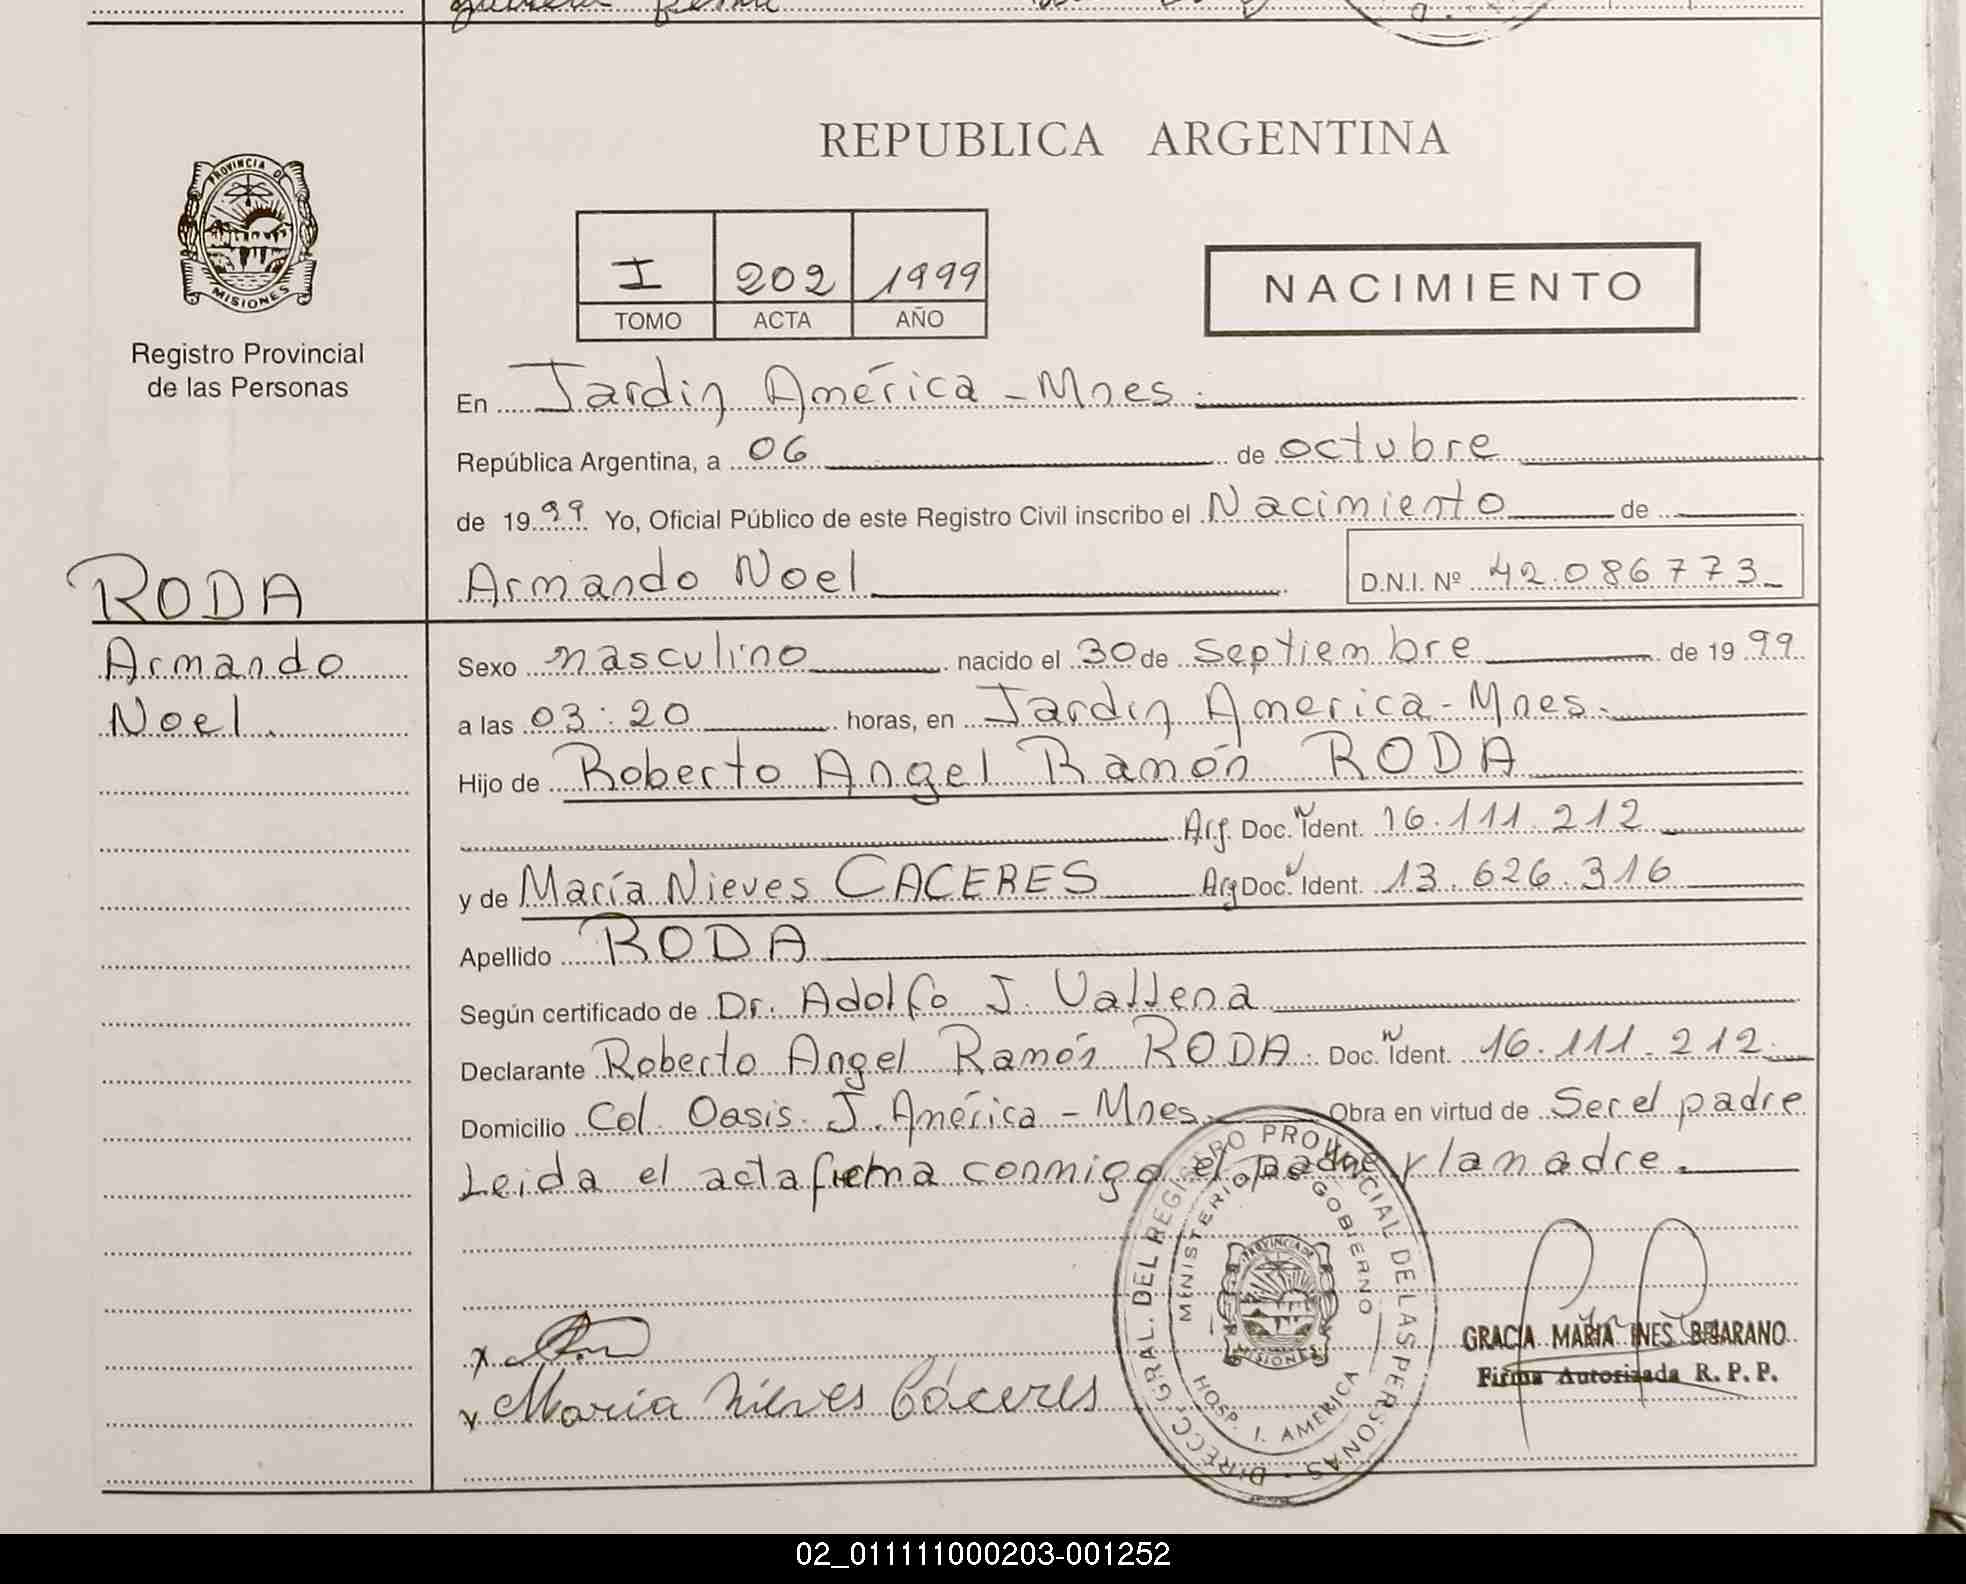 REPUBLICA ARGENTINA
PROVINCIA DE
MISIONES
Registro Provincial
de las Personas
I 202 1999
TOMO ACTA AÑO
NACIMIENTO
En Jardin América - Mnes.
República Argentina, a 06 de octubre
de 1999 Yo, Oficial Público de este Registro Civil inscribo el Nacimiento de
Armando Noel D.N.I. Nº 42.086773
RODA
Armando
Noel.
Sexo masculino nacido el 30 de septiembre de 1999
a las 03:20 horas, en Jardin America - Mnes.
Hijo de Roberto Angel Ramón RODA
Arg. Doc. N Ident. 16.111.212
y de María Nieves CACERES Arg Doc. Ident. 13.626.316
Apellido RODA
Según certificado de Dr. Adolfo J.
Declarante Roberto Angel Ramón RODA. Doc. N Ident. 16.111.212
Domicilio Col. Oasis. J. América - Mnes. Obra en virtud de Ser el padre
Leida el acta firma conmigo el padre y la madre.
x
María Nieves Cáceres
DIRECC. GRAL. DEL REGISTRO PROVINCIAL DE LAS PERSONAS
MINISTERIO DE GOBIERNO
PROVINCIA DE
MISIONES
HOSP. J. AMERICA
GRACIA MARIA INES BEJARANO
Firma Autorizada R. P. P.
02_011111000203-001252